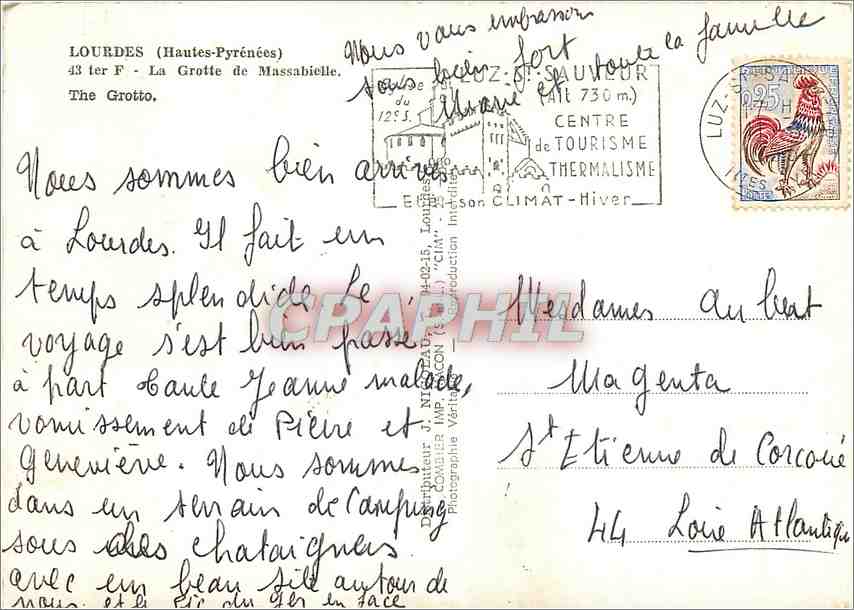 LOURDES (Hautes-Pyrénées)
43 ter F - La Grotte de Massabielle.
The Grotto.
Nous sommes bien arrivés
à Lourdes. Il fait un
temps splendide. Le
voyage s'est bien passé,
à part tante Jeanne malade,
vomissement de Pierre et
Geneviève. Nous sommes
dans un terrain de Camping
sous des chataigners
avec un beau site autour de
nous et le Pic du Ger en face
Nous vous embrassons
tous bien fort
Marie et toute la famille
Eglise
du
12e S.
LUZ-St-SAUVEUR
(Alt 730 m.)
CENTRE
de TOURISME
THERMALISME
Eté - son CLIMAT - Hiver
LUZ-St-SA
0,25
Distributeur J. NICOLAU, Lourdes
COMBIER IMP. MACON (S.-&-L.) "CIM"
Photographie Véritable - Reproduction Interdite
CPAPHIL
Mesdames Aubert
Magenta
St Etienne de Corcoué
44 Loire Atlantique